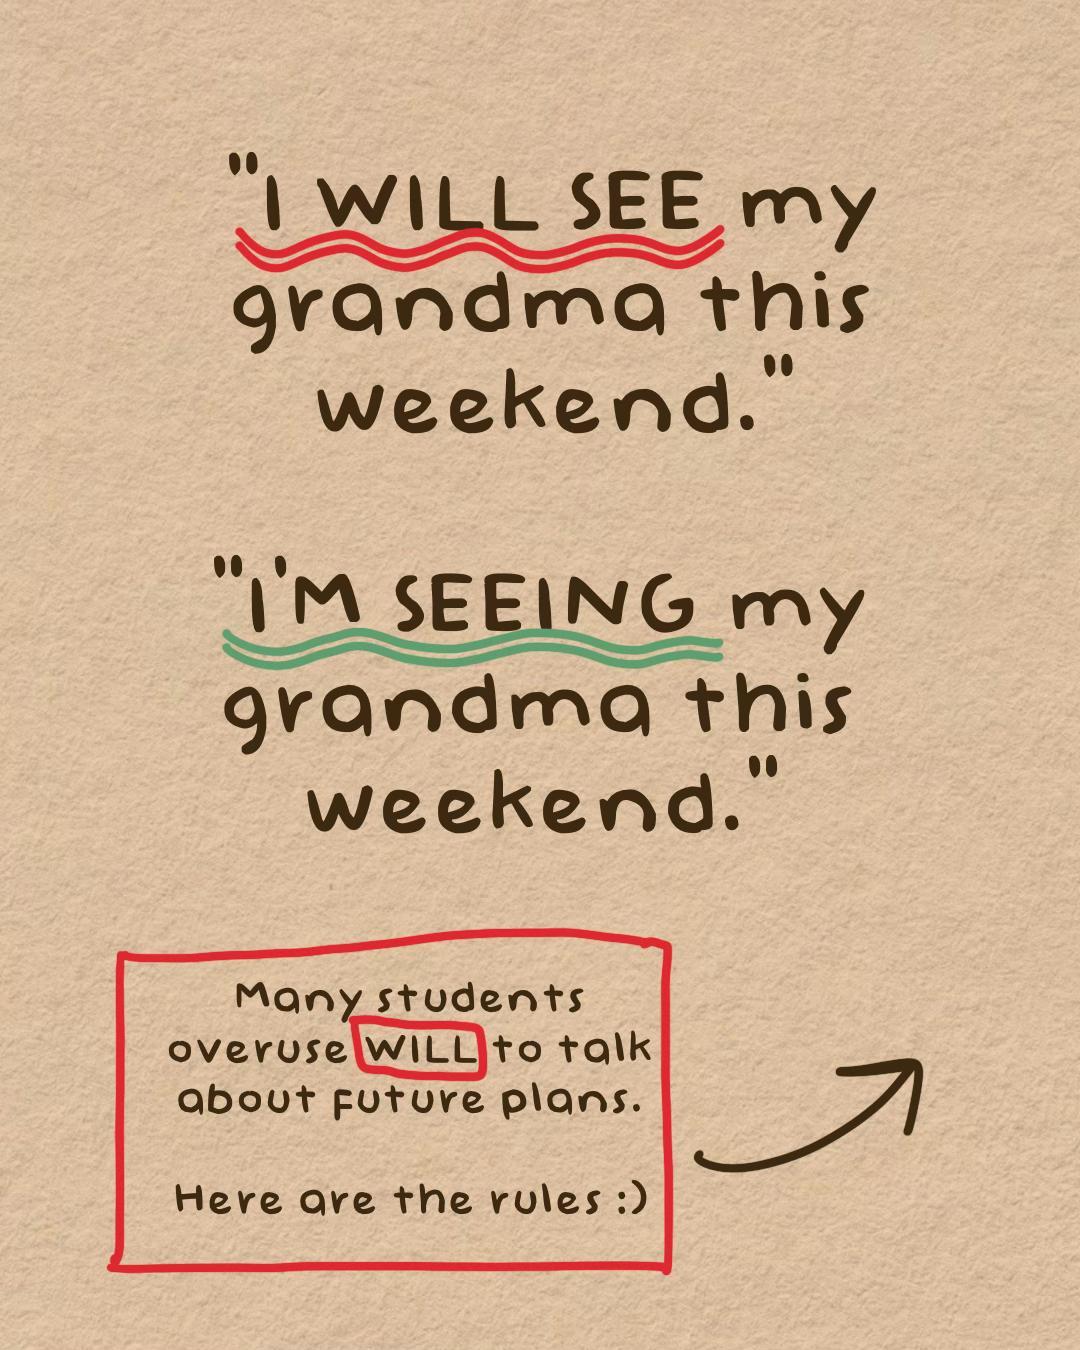 "I WILL SEE my
grandma this
weekend."
"I'M SEEING my
grandma this
weekend."
Many students
overuse WILL to talk
about future plans.
Here are the rules :)